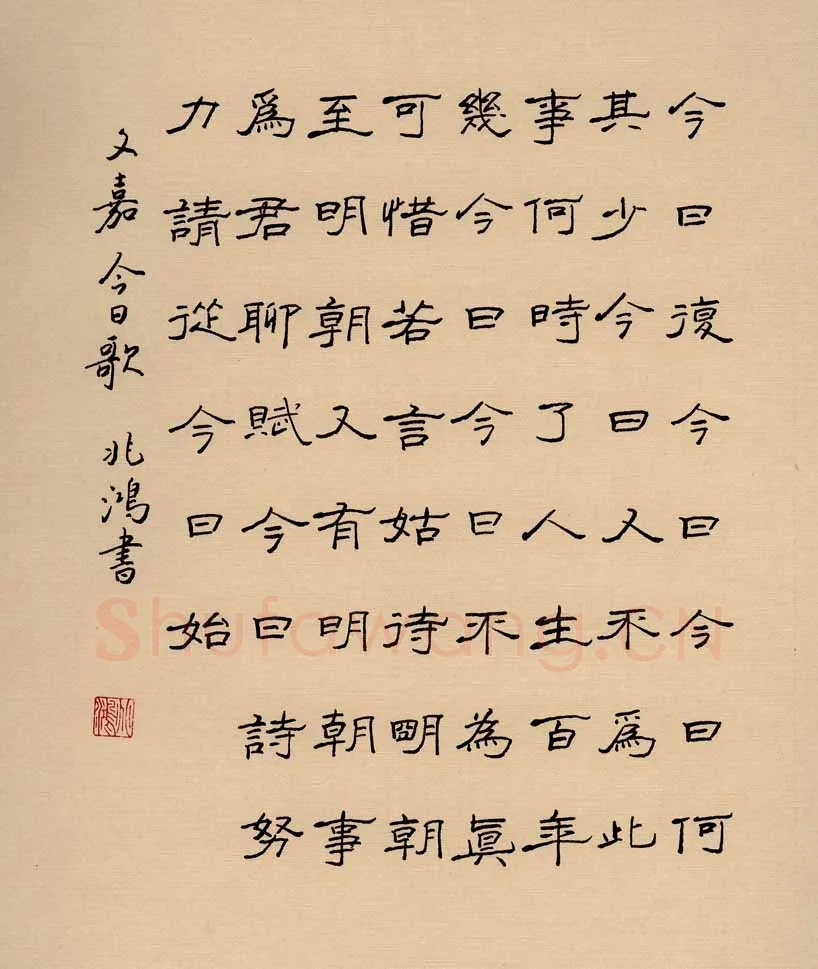 今日復今日今日何
其少今日又不爲此
事何時了人生百年
幾今日今日不為眞
可惜若言姑待明朝
至明朝又有明朝事
爲君聊賦今日詩努
力請從今日始
文嘉 今日歌 兆鴻書
兆鴻
Shufawang.cn